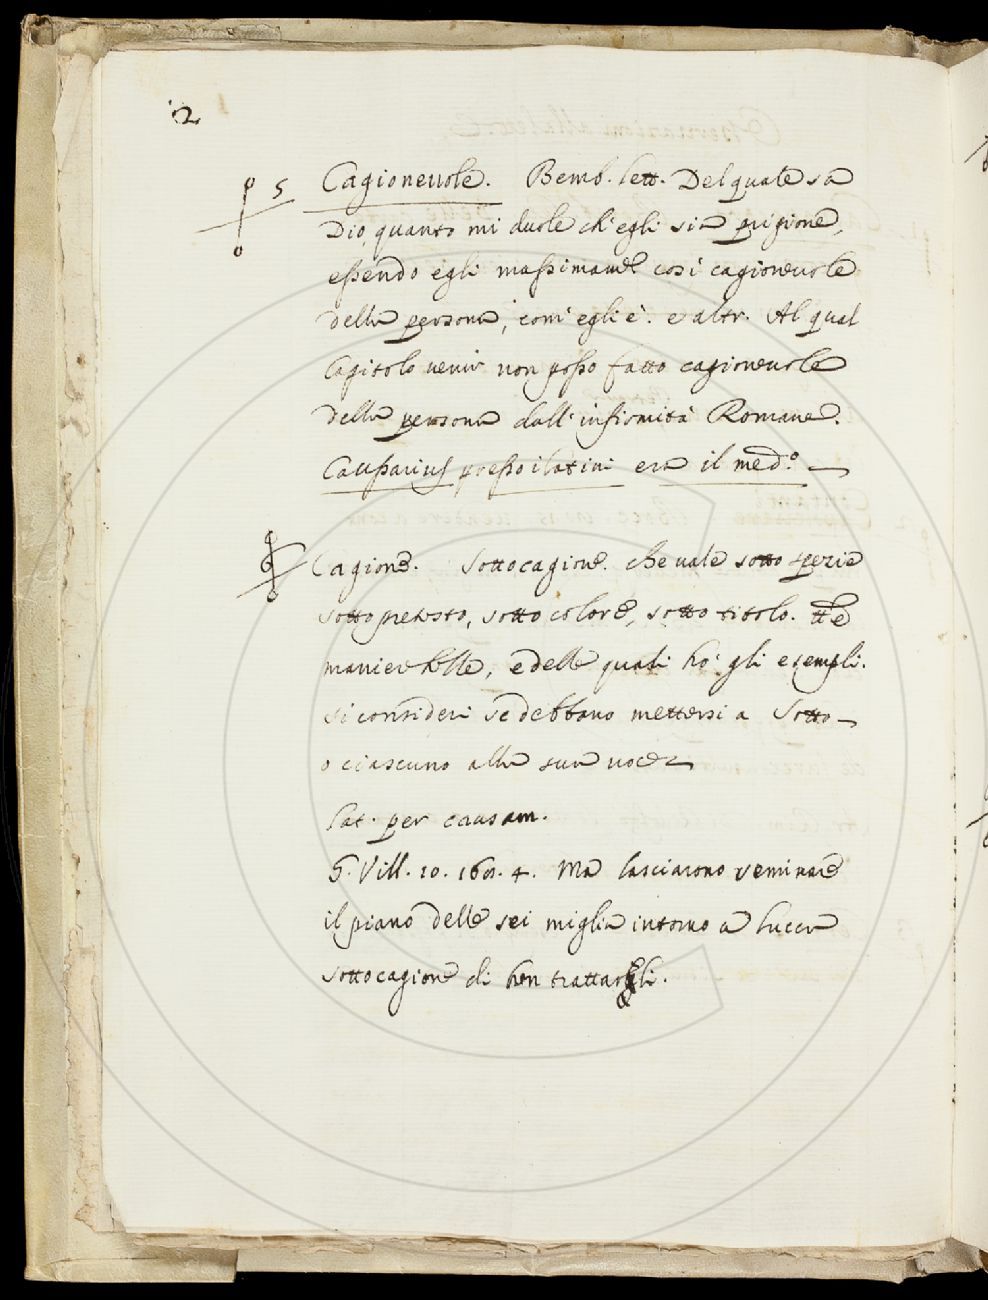 2
5 Cagioneuole. Bemb. Lett. Del quale sa
Dio quanto mi duole ch'egli sia prigione,
essendo egli massimam.e così cagioneuole
della persona, com'egli è. e altr. Al qual
Capitolo uenir non posso fatto cagioneuole
della persona dall'infirmità Romane.
Caussarius presso i latini era il med.o
6 Cagione. Sottocagione. che uale sotto spezie
sotto pretesto, sotto colore, sotto titolo. tt.e
manier belle, e delle quali ho gli esempli.
si consideri se debbano mettersi a Sotto
o ciascuno alla sua uoce
Lat. per causam.
G. Vill. 10. 160. 4. Ma lasciarono seminare
il piano delle sei miglia intorno a Lucca
sottocagione di ben trattargli.